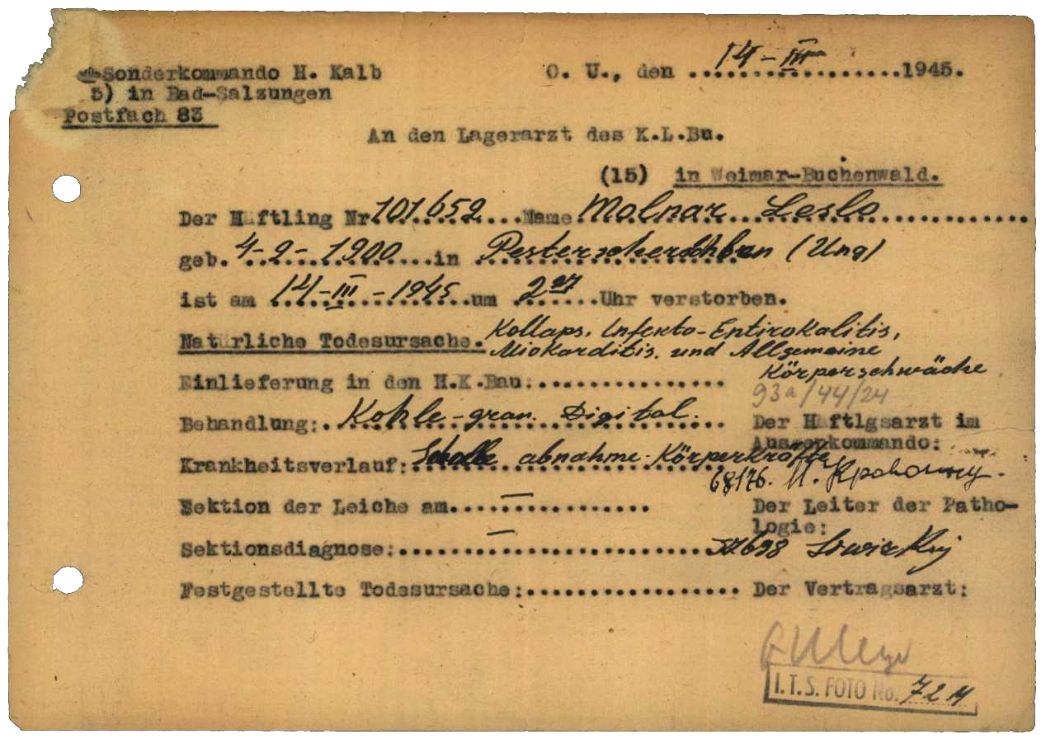 Sonderkommando H. Kalb O. U., den 14-III 1945.
5) in Bad-Salzungen
Postfach 83
An den Lagerarzt des K.L.Bu.
(15) in Weimar-Buchenwald.
Der Häftling Nr 101652 Name Molnar Leslo
geb. 4-2-1900 in (Ung)
ist am 14-III-1945 um 2 Uhr verstorben.
Natürliche Todesursache. Kollaps. Infekto-Entirokalitis,
Miokarditis, und Allgemeine
Körperschwäche
Einlieferung in den H.K.Bau:
93a/44/24
Behandlung: Kohle-gran. Digital. Der Häftlgsarzt im
Aussenkommando:
Krankheitsverlauf: abnahme-Körperkräfte
68176.
Sektion der Leiche am — Der Leiter der Patho-
logie:
Sektionsdiagnose: —
Festgestellte Todesursache: Der Vertragsarzt:
I.T.S. FOTO No. 72